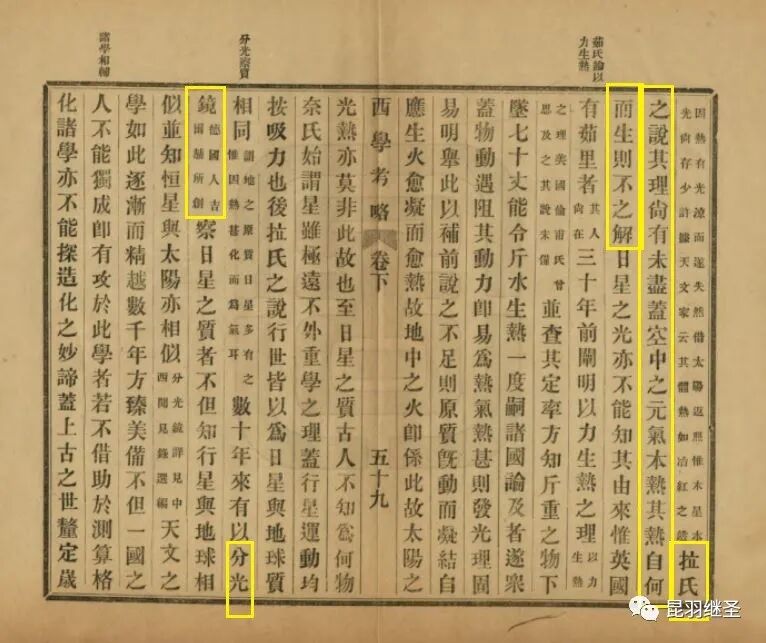 茹氏論以力生熱
因熱有光涼而遂失然借太陽返照惟木星本
光尚存少許據天文家云其體熱如冶紅之鐵
拉氏
之說其理尙有未盡蓋空中之元氣本熱其熱自何
而生則不之解日星之光亦不能知其由來惟英國
有茹里者其人尙在三十年前闡明以力生熱之理以力生熱
之理美國倫甫氏曾思及之其說未備並查其定率方知斤重之物下
墜七十丈能令斤水生熱一度嗣諸國論及者遂衆
蓋物動遇阻其動力卽易爲熱氣熱甚則發光理固
易明舉此以補前說之不足則原質旣動而凝結自
應生火愈凝而愈熱故地中之火卽係此故太陽之
西學考略 卷下 五十九
光熱亦莫非此故也至日星之質古人不知爲何物
奈氏始謂星雖極遠不外重學之理蓋行星運動均
按吸力也後拉氏之說行世皆以爲日星與地球質
分光察質
相同謂地之原質日星多有之惟因熱甚化而爲氣耳數十年來有以分光
鏡德國人吉爾赫所創察日星之質者不但知行星與地球相
似並知恒星與太陽亦相似分光鏡詳見中西聞見錄選編天文之
學如此逐漸而精越數千年方臻美備不但一國之
諸學相輔
人不能獨成卽有攻於此學者若不借助於測算格
化諸學亦不能探造化之妙諦蓋上古之世釐定歲
昆羽继圣